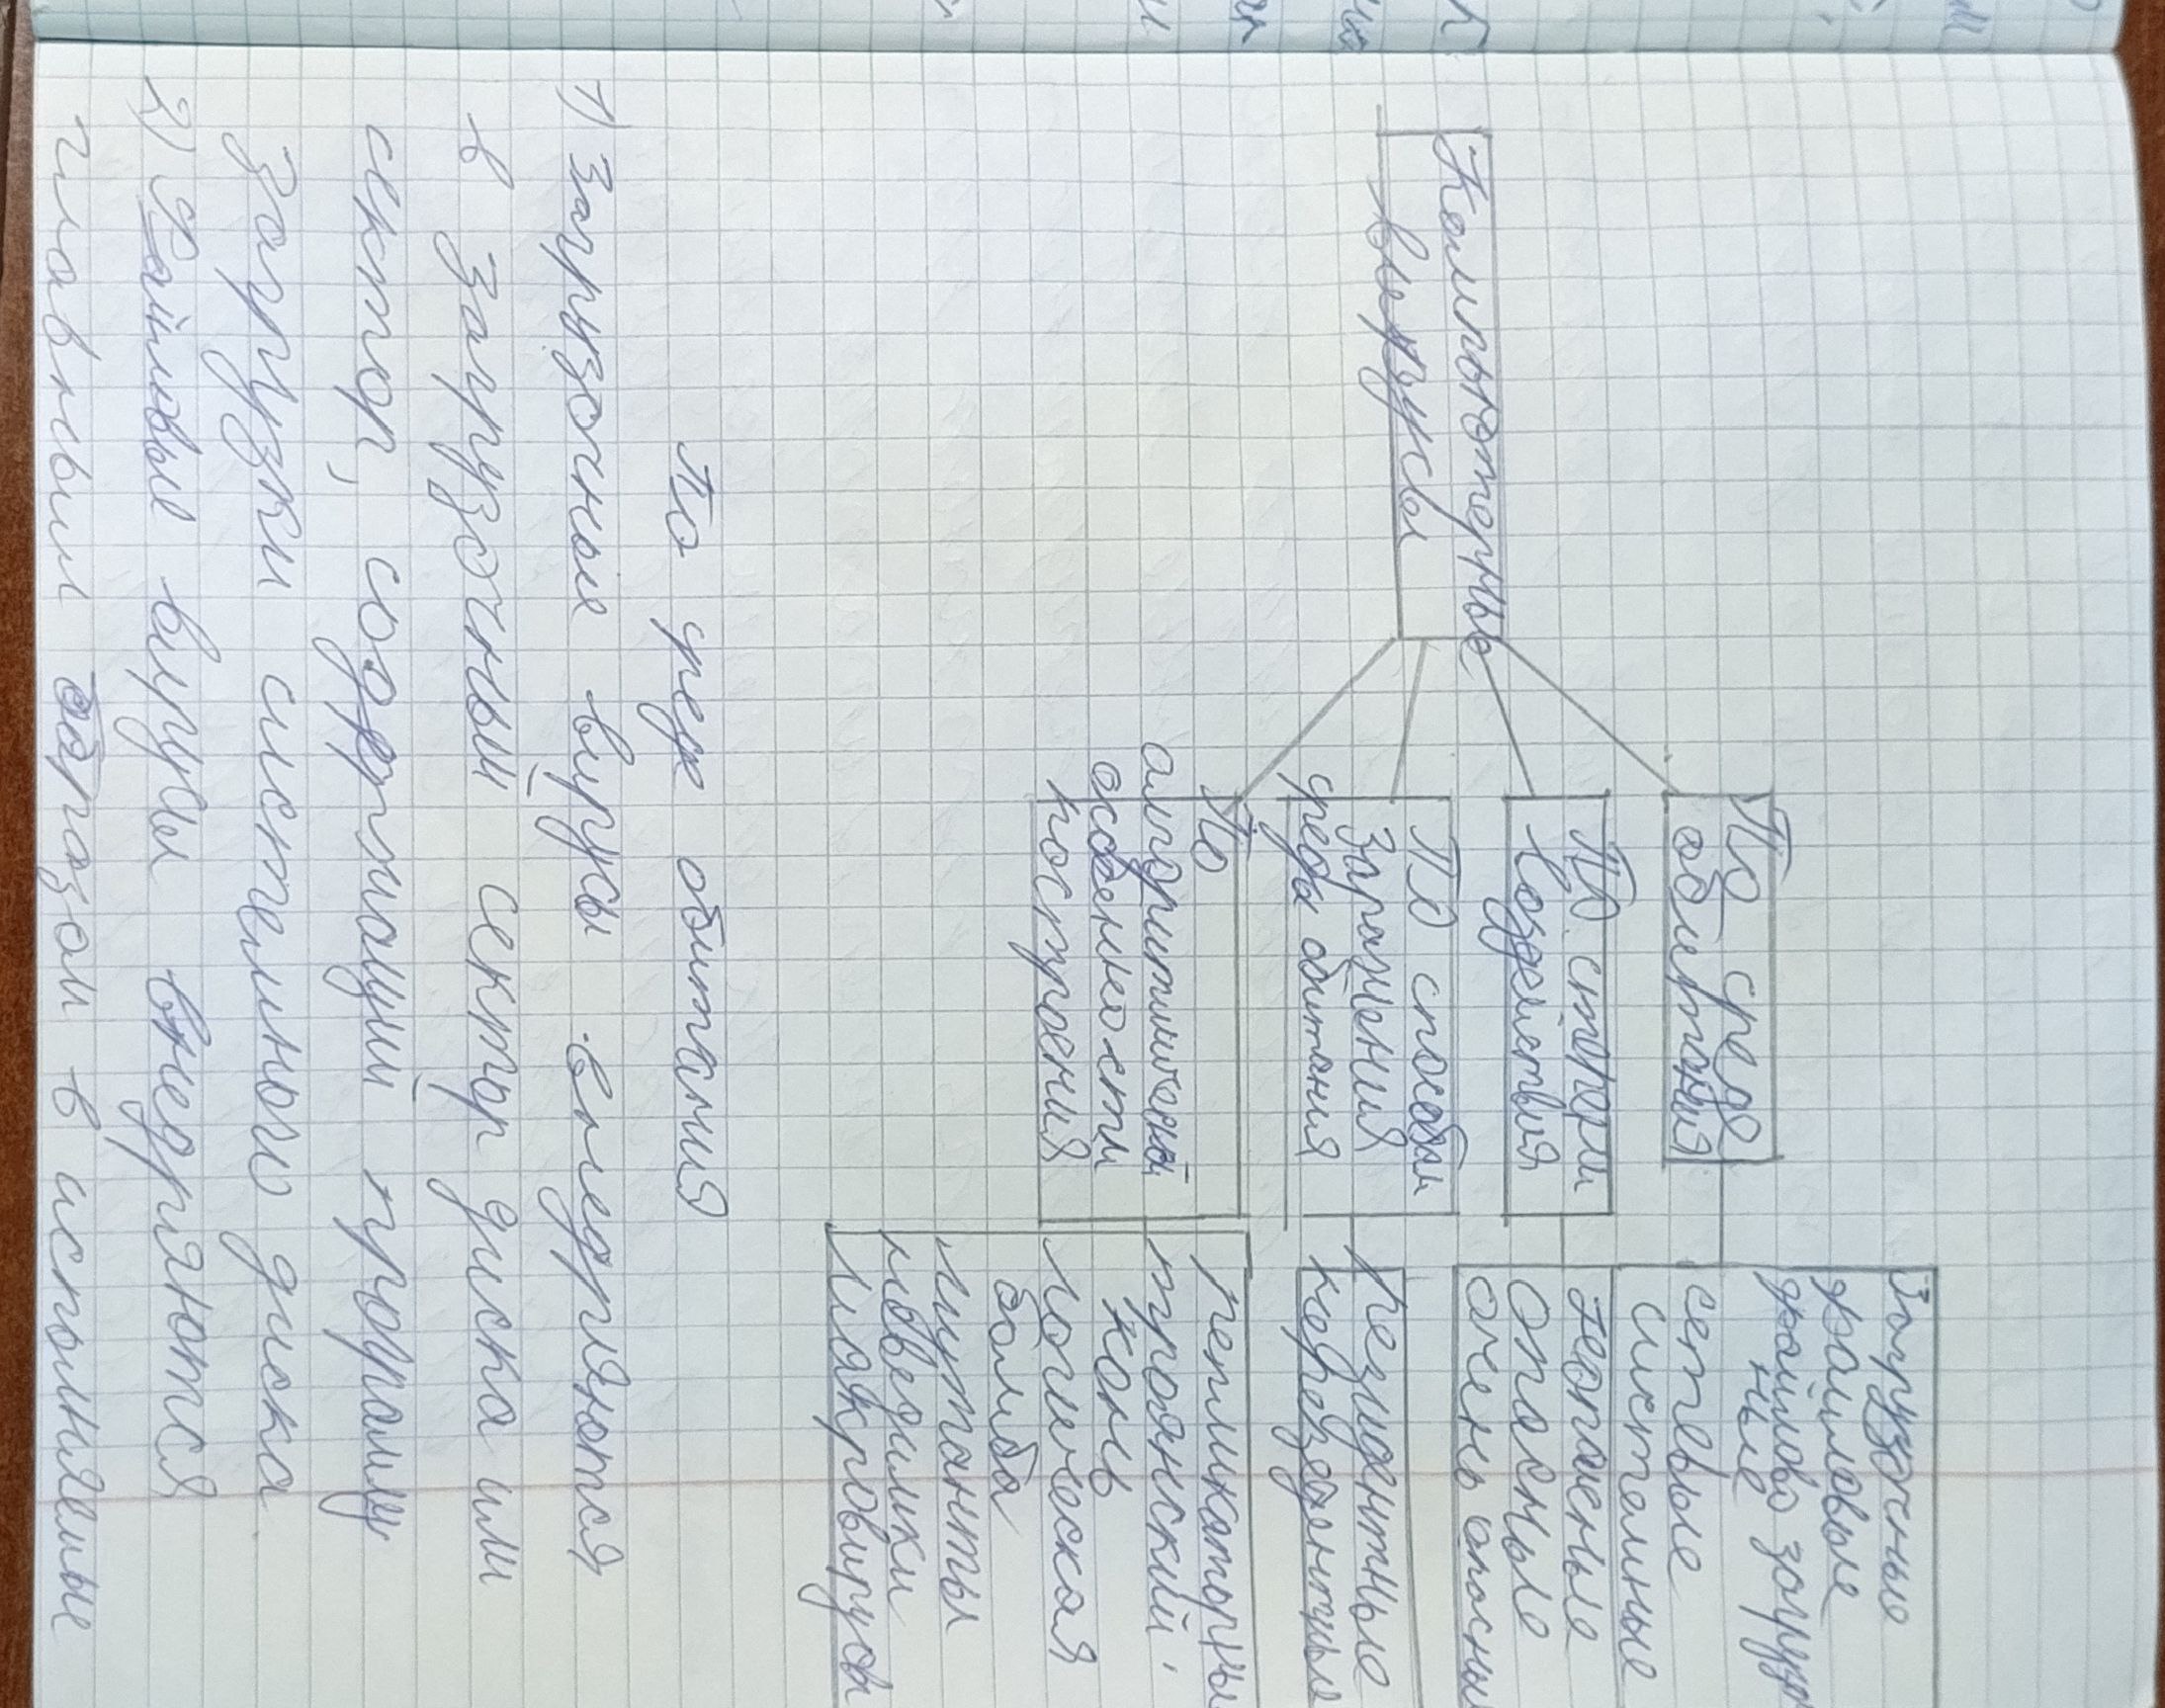 Компьютерные
вирусы
По среде
обитания
По степени
воздействия
По способам
заражения
среды обитания
По
алгоритмической
особенности
построения
Загрузочные
файловые
файлово загрузоч
ные
сетевые
системные
неопасные
опасные
очень опасные
Резидентные
нерезидентные
репликаторы
троянский
конь
логическая
бомба
мутанты
невидимки
макровирусы
По сред обитания
1) Загрузочные вирусы внедряются
в загрузочный сектор диска или
сектор, содержащий программу
загрузки системного диска.
2) Файловые вирусы внедряются
главным образом в исполняемые